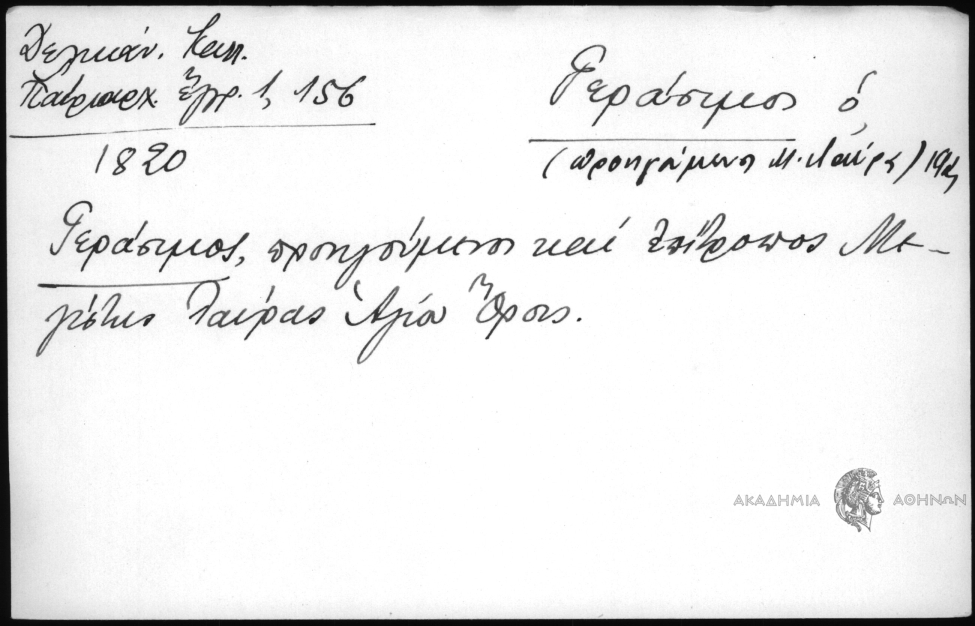 Δελικάν. Καλ.
Πατριαρχ. Ἔγγρ. 1, 156
1820
Γεράσιμος ὁ
(προηγούμενος Μ. Λαύρας) 19ος
Γεράσιμος, προηγούμενος καί ἐπίτροπος Με-
γίστης Λαύρας Ἁγίου Ὄρους.
ΑΚΑΔΗΜΙΑ ΑΘΗΝΩΝ